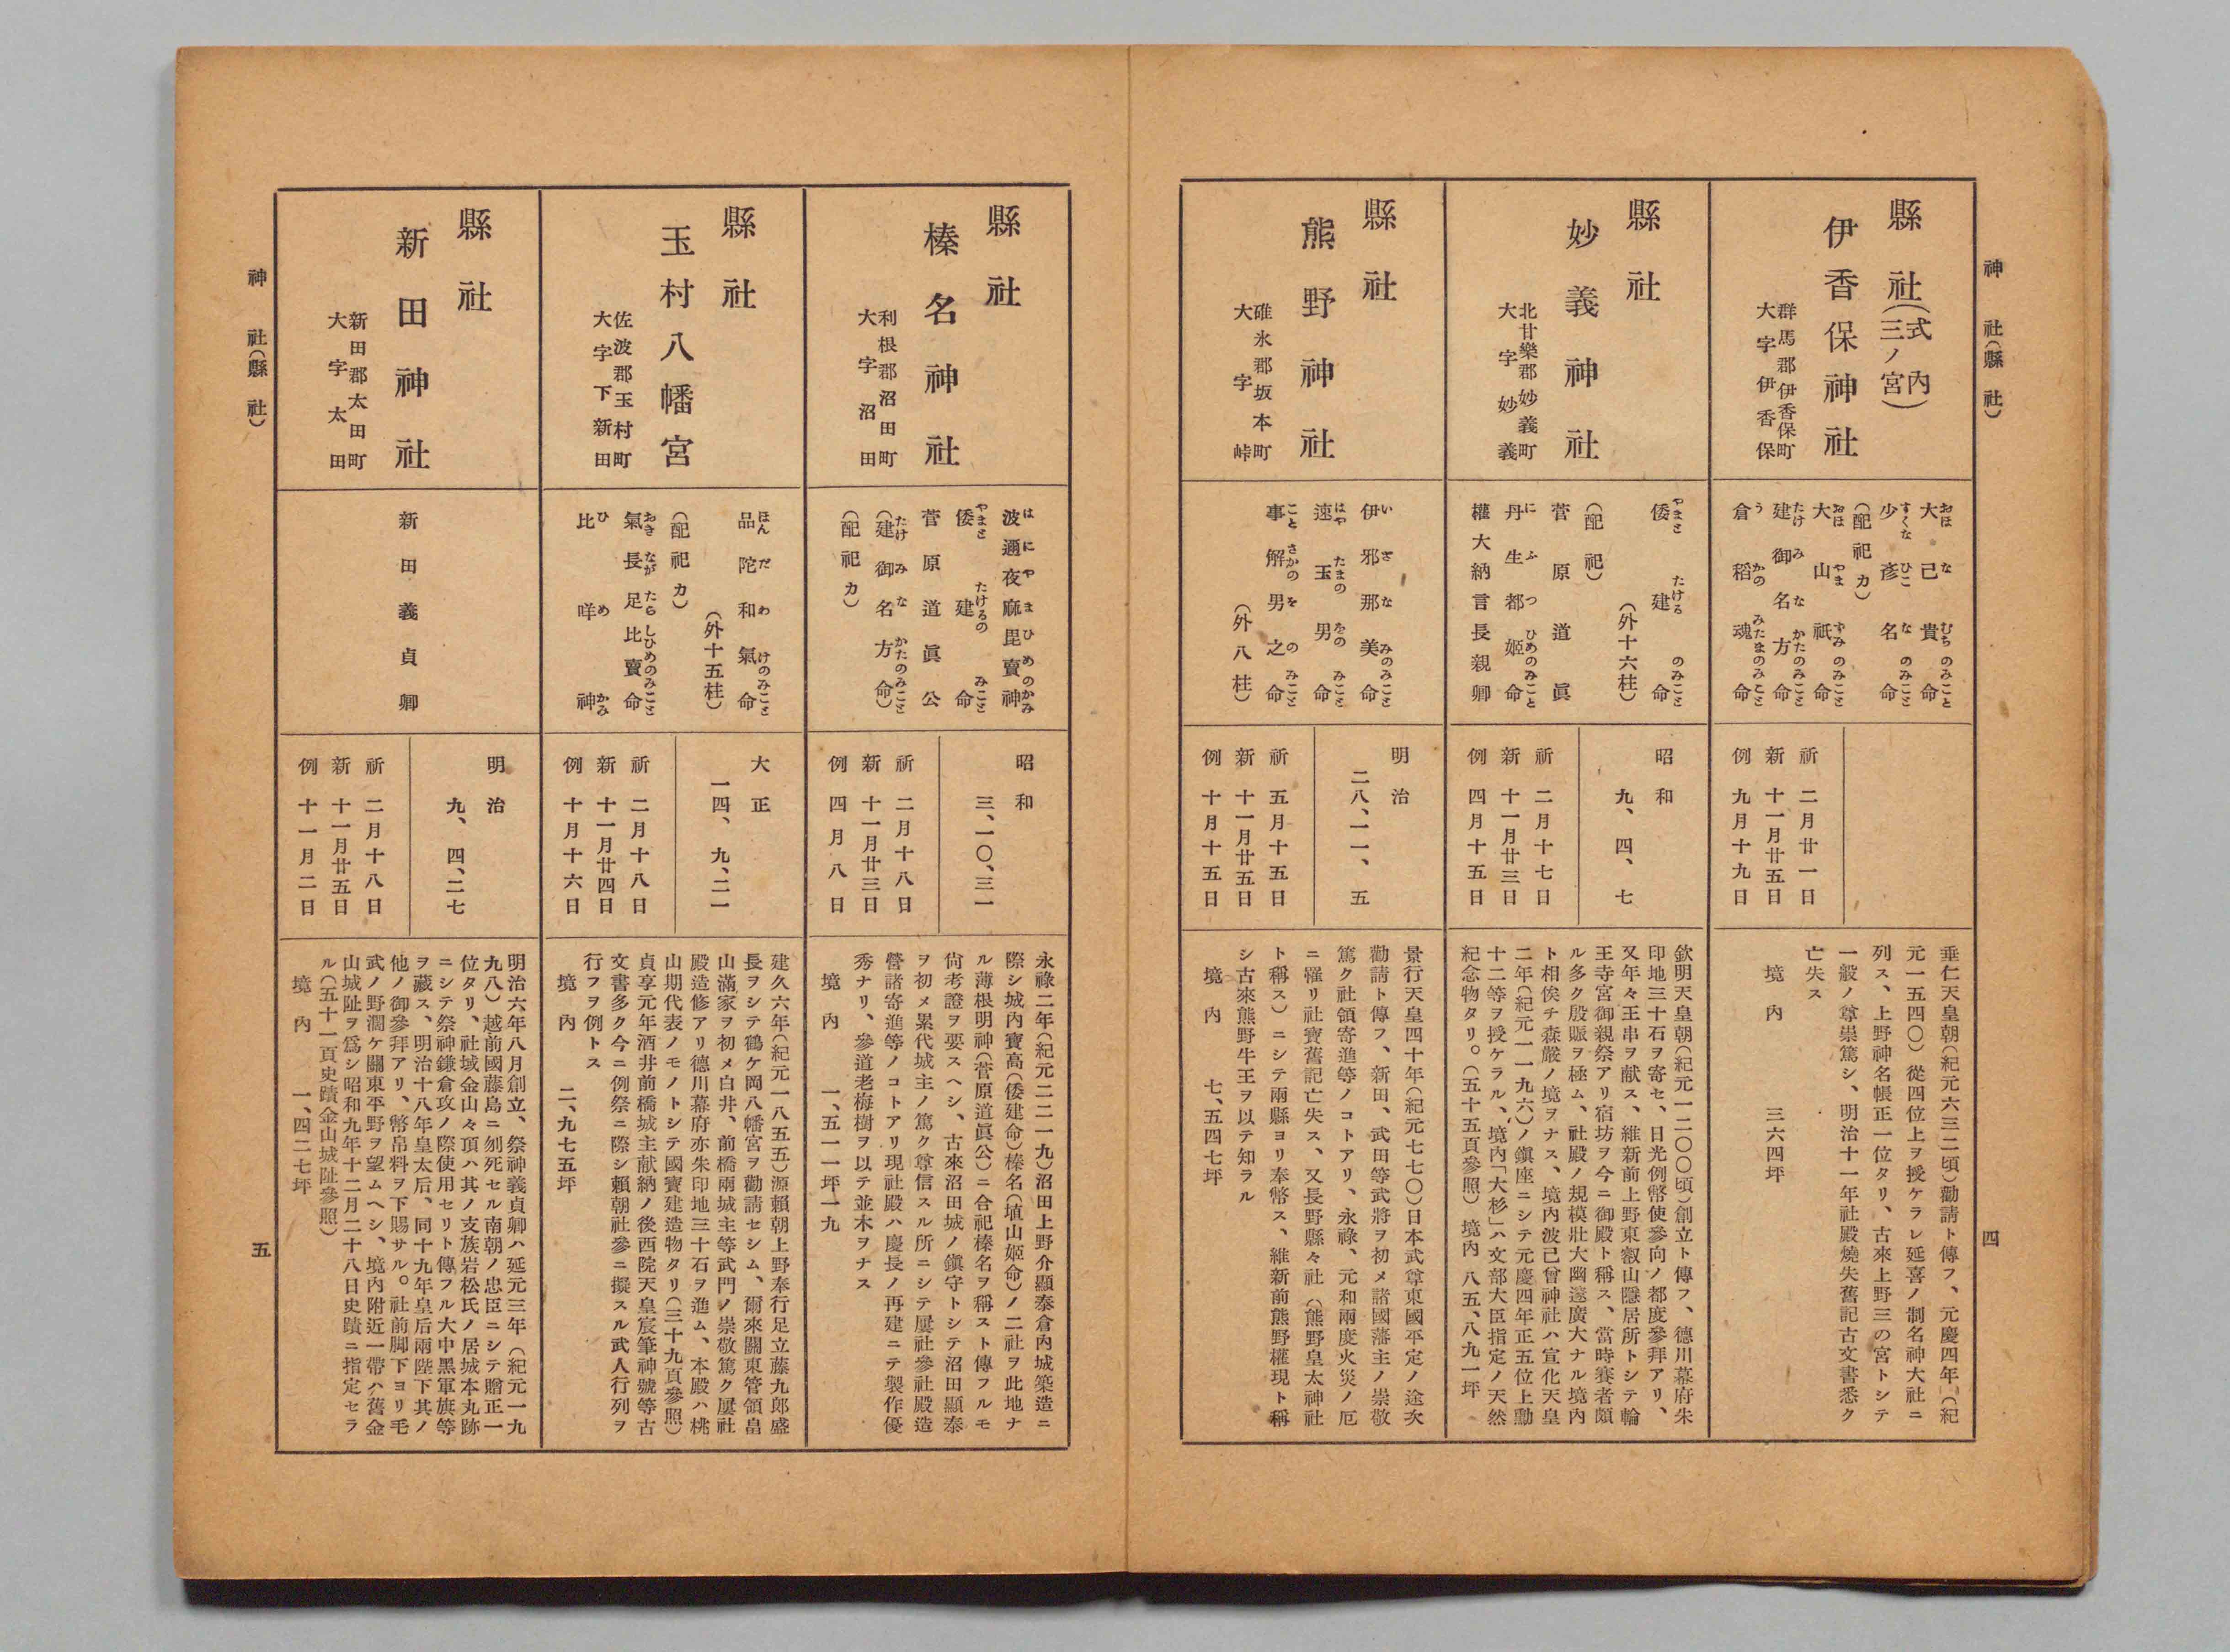 神社(縣社)
四
縣社(式内)(三ノ宮)
伊香保神社
群馬郡伊香保町
大字伊香保
大己貴命
おほなむちのみこと
少彥名命
すくなひこなのみこと
(配祀カ)
大山祇命
おほやまずみのみこと
建御名方命
たけみなかたのみこと
倉稻魂命
うかのみたまのみこと
祈 二月廿一日
新 十一月廿五日
例 九月十九日
垂仁天皇朝(紀元六三二頃)勸請ト傳フ、元慶四年(紀
元一五四〇)從四位上ヲ授ケラレ延喜ノ制名神大社ニ
列ス、上野神名帳正一位タリ、古來上野三の宮トシテ
一般ノ尊崇篤シ、明治十一年社殿燒失舊記古文書悉ク
亡失ス
境内 三六四坪
縣社
妙義神社
北甘樂郡妙義町
大字妙義
倭建命
やまとたけるのみこと
(外十六柱)
(配祀)
菅原道眞
丹生都姬命
にふつひめのみこと
權大納言長親卿
昭和
九、四、七
祈 二月十七日
新 十一月廿三日
例 四月十五日
欽明天皇朝(紀元一二〇〇頃)創立ト傳フ、德川幕府朱
印地三十石ヲ寄セ、日光例幣使參向ノ都度參拜アリ、
又年々王串ヲ献ス、維新前上野東叡山隱居所トシテ輪
王寺宮御親祭アリ宿坊ヲ今ニ御殿ト稱ス、當時賽者頗
ル多ク殷賑ヲ極ム、社殿ノ規模壯大幽邃廣大ナル境内
ト相俟チ森嚴ノ境ヲナス、境内波己曾神社ハ宣化天皇
二年(紀元一一九六)ノ鎭座ニシテ元慶四年正五位上勳
十二等ヲ授ケラル、境内「大杉」ハ文部大臣指定ノ天然
紀念物タリ。(五十五頁參照) 境内 八五、八九一坪
縣社
熊野神社
碓氷郡坂本町
大字峠
伊邪那美命
いざなみのみこと
速玉男命
はやたまのをのみこと
事解男之命
ことさかのをのみこと
(外八柱)
明治
二八、一一、五
祈 五月十五日
新 十一月廿五日
例 十月十五日
景行天皇四十年(紀元七七〇)日本武尊東國平定ノ途次
勸請ト傳フ、新田、武田等武將ヲ初メ諸國藩主ノ崇敬
篤ク社領寄進等ノコトアリ、永祿、元和兩度火災ノ厄
ニ罹リ社寶舊記亡失ス、又長野縣々社(熊野皇太神社
ト稱ス)ニシテ兩縣ヨリ奉幣ス、維新前熊野權現ト稱
シ古來熊野牛王ヲ以テ知ラル
境内 七、五四七坪
縣社
榛名神社
利根郡沼田町
大字沼田
波邇夜麻毘賣神
はにやまひめのかみ
倭建命
やまとたけるのみこと
菅原道眞公
(建御名方命)
たけみなかたのみこと
(配祀カ)
昭和
三、一〇、三一
祈 二月十八日
新 十一月廿三日
例 四月八日
永祿二年(紀元二二一九)沼田上野介顯泰倉内城築造ニ
際シ城内寶高(倭建命)榛名(埴山姬命)ノ二社ヲ此地ナ
ル薄根明神(菅原道眞公)ニ合祀榛名ヲ稱スト傳フルモ
尙考證ヲ要スヘシ、古來沼田城ノ鎭守トシテ沼田顯泰
ヲ初メ累代城主ノ篤ク尊信スル所ニシテ屢社參社殿造
營諸寄進等ノコトアリ現社殿ハ慶長ノ再建ニテ製作優
秀ナリ、參道老梅樹ヲ以テ並木ヲナス
境内 一、五一一坪一九
縣社
玉村八幡宮
佐波郡玉村町
大字下新田
品陀和氣命
ほんだわけのみこと
(外十五柱)
(配祀カ)
氣長足比賣命
おきながたらしひめのみこと
比咩神
ひめかみ
大正
一四、九、二一
祈 二月十八日
新 十一月廿四日
例 十月十六日
建久六年(紀元一八五五)源賴朝上野奉行足立藤九郎盛
長ヲシテ鶴ケ岡八幡宮ヲ勸請セシム、爾來關東管領畠
山滿家ヲ初メ白井、前橋兩城主等武門ノ崇敬篤ク屢社
殿造修アリ德川幕府亦朱印地三十石ヲ進ム、本殿ハ桃
山期代表ノモノトシテ國寶建造物タリ(三十九頁參照)
貞享元年酒井前橋城主献納ノ後西院天皇宸筆神號等古
文書多ク今ニ例祭ニ際シ賴朝社參ニ擬スル武人行列ヲ
行フヲ例トス
境内 二、九七五坪
縣社
新田神社
新田郡太田町
大字太田
新田義貞卿
明治
九、四、二七
祈 二月十八日
新 十一月廿五日
例 十一月二日
明治六年八月創立、祭神義貞卿ハ延元三年(紀元一九
九八)越前國藤島ニ刎死セル南朝ノ忠臣ニシテ贈正一
位タリ、社域金山々頂ハ其ノ支族岩松氏ノ居城本丸跡
ニシテ祭神鎌倉攻ノ際使用セリト傳フル大中黑軍旗等
ヲ藏ス、明治十八年皇太后、同十九年皇后兩陛下其ノ
他ノ御參拜アリ、幣帛料ヲ下賜サル。社前脚下ヨリ毛
武ノ野濶ケ關東平野ヲ望ムヘシ、境内附近一帶ハ舊金
山城阯ヲ爲シ昭和九年十二月二十八日史蹟ニ指定セラ
ル(五十一頁史蹟金山城阯參照)
境内 一、四二七坪
神社(縣社)
五